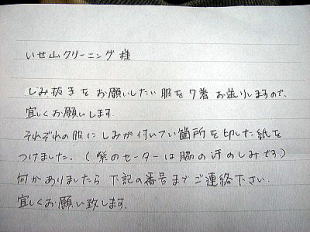 いせ山クリーニング様
しみ抜きをお願いしたい服を7着お送りしますので、
宜しくお願いします。
それぞれの服にしみが付いている箇所を印した紙を
つけました。(紫のセーターは脇の汗のしみです)
何かありましたら下記の番号までご連絡下さい。
宜しくお願い致します。